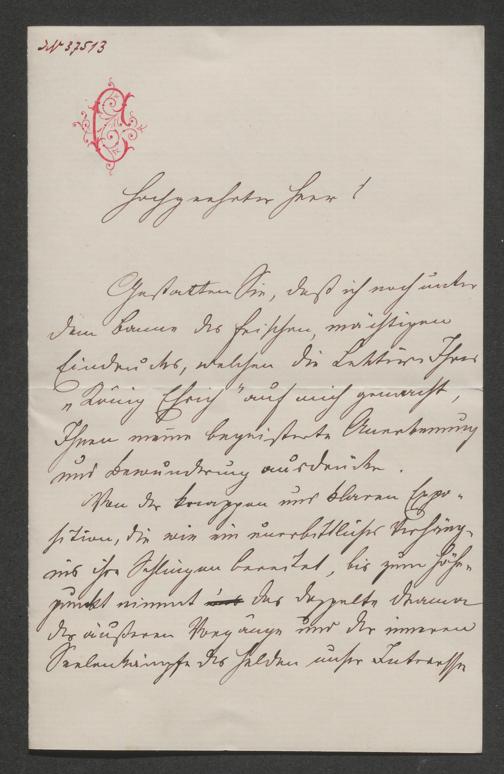 JN 37513
Hochgeehrter Herr!
Gestatten Sie, daß ich noch unter
dem Banne des frischen, mächtigen
Eindruckes, welchen die Lektüre Ihres
„König Ehrich" auf mich gemacht,
Ihnen meine begeisterte Anerkennung
und Bewunderung ausdrücke.
Von der knappen und klaren Expo-
sition, die wie ein unerbittliches Verhäng-
nis ihre Schlingen bereitet, bis zum Höhe-
punkt nimmt das doppelte Drama
der äußeren Vorgänge und der inneren
Seelenkämpfe des Helden unser Interesse